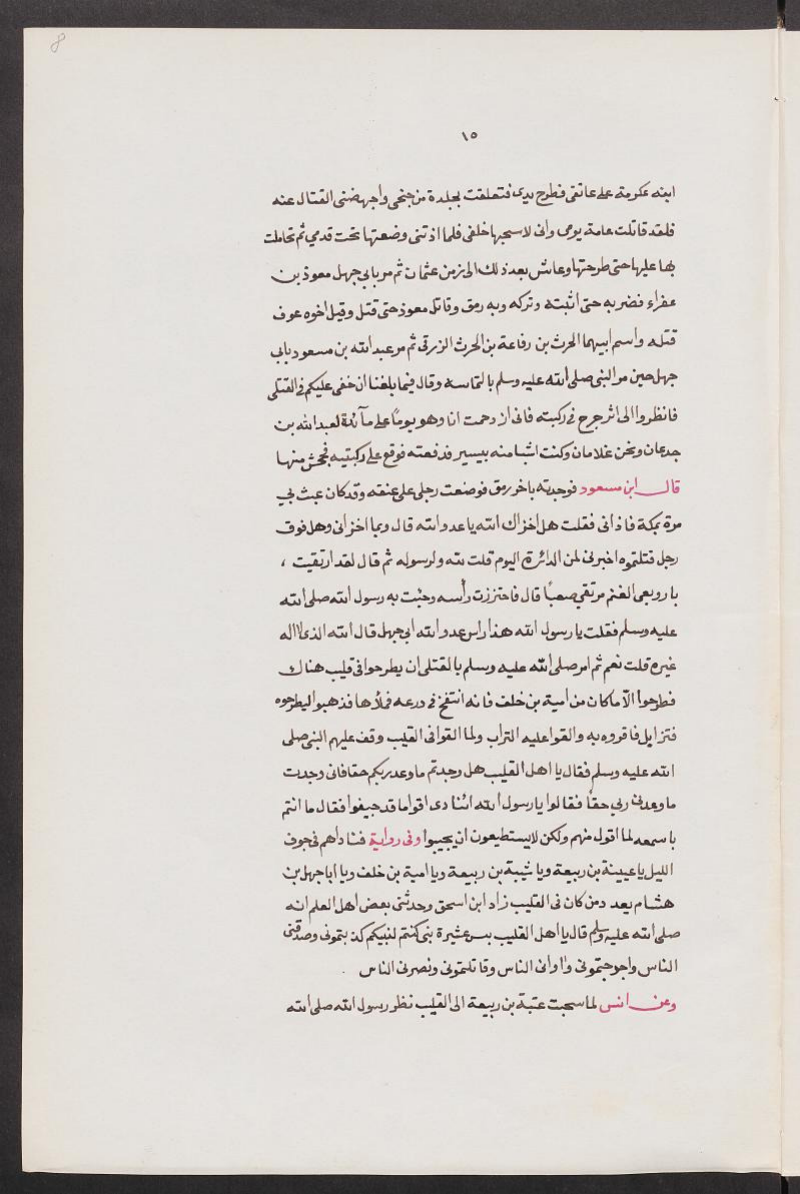 8
١٥
ابنه عكرمة على عاتقى فطرح يدى فتعلقت بجلدة من جنبى واجهضنى القتال عنه
فلقد قاتلت عامة يومى وانى لاسحبها خلفى فلما اذتنى وضعتها تحت قدمي ثم تحاملت
بها عليها حتى طرحتها وعاش بعد ذلك الى زمن عثمان ثم مر بابي جهل معوذ بن
عفراء فضربه حتى اثبته وتركه وبه رمق وقاتل معوذ حتى قتل وقيل اخوه عوف
قتله واسم ابيهما الحرث بن رفاعة بن الحرث الزرقى ثم مر عبد الله بن مسعود بابى
جهل حين مر النبى صلى الله عليه وسلم بالتماسه وقال فيما بلغنا ان خفى عليكم فى القتلى
فانظروا الى اثر جرح فى ركبته فانى ازدحمت انا وهو يومًا على مآئدة لعبد الله بن
جدعان ونحن غلامان وكنت اشب منه بيسير فدفعته فوقع على ركبتيه فجحش منها
قال ابن مسعود فوجدته باخر رمق فوضعت رجلى على عنقه وقد كان عبث بي
مرة بمكة فاذانى فقلت هل اخزاك الله يا عدو الله قال وبما اخزانى وهل فوق
رجل قتلتموه اخبرنى لمن الدائرة اليوم قلت لله ولرسوله ثم قال لقد ارتقيت ،
يا رويعى الغنم مرتقي صعبًا قال فاحتززت رأسه وجئت به رسول الله صلى الله
عليه وسلم فقلت يا رسول الله هذا راس عدو الله ابى جهل قال الله الذى لا اله
غيره قلت نعم ثم امر صلى الله عليه وسلم بالقتلى ان يطرحوا فى قليب هناك
فطرحوا الّا ما كان من امية بن خلف فانه انتفخ فى درعه فملأها فذهبوا ليطرحوه
فتزايل فاقروه به والقوا عليه التراب ولما القوا فى القليب وقف عليهم النبى صلى
الله عليه وسلم فقال يا اهل القليب هل وجدتم ما وعد ربكم حقا فانى وجدت
ما وعدنى ربي حقًا فقالوا يا رسول الله اتنادى اقواما قد جيفوا فقال ما انتم
باسمعه لما اقول منهم ولكن لا يستطيعون ان يجيبوا وفى رواية فناداهم فى جوف
الليل يا عيينة بن ربيعة ويا شيبة بن ربيعة ويا امية بن خلف ويا ابا جهل بن
هشام يعدد من كان فى القليب زاد ابن اسحق وحدثنى بعض اهل العلم انه
صلى الله عليه وسلم قال يا اهل القليب بس عشيرة نبى كنتم لنبيكم كذبتمونى وصدقنى
الناس واخرجتمونى واوانى الناس وقاتلتمونى ونصرنى الناس .
وعن انس لما سحبت عتبة بن ربيعة الى القليب نظر رسول الله صلى الله